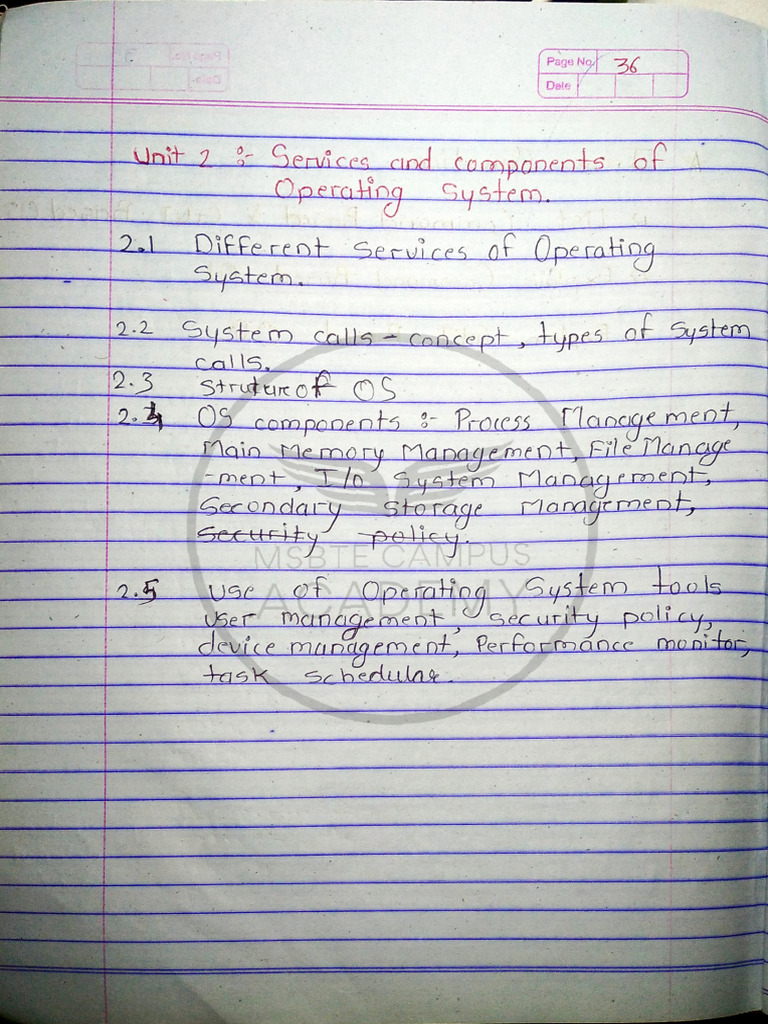 Page No. 36
Date
Unit 2 :- Services and components of
Operating System.
2.1 Different Services of Operating
System.
2.2 System calls - concept, types of System
calls.
2.3 Struture of OS
2.4 OS components :- Process Management,
Main Memory Management, File Manage
-ment, I/o System Management,
Secondary Storage Management,
security policy.
MSBTE CAMPUS
ACADEMY
2.5 Use of Operating System tools
user management, security policy,
device management, Performance monitor,
task schedular.